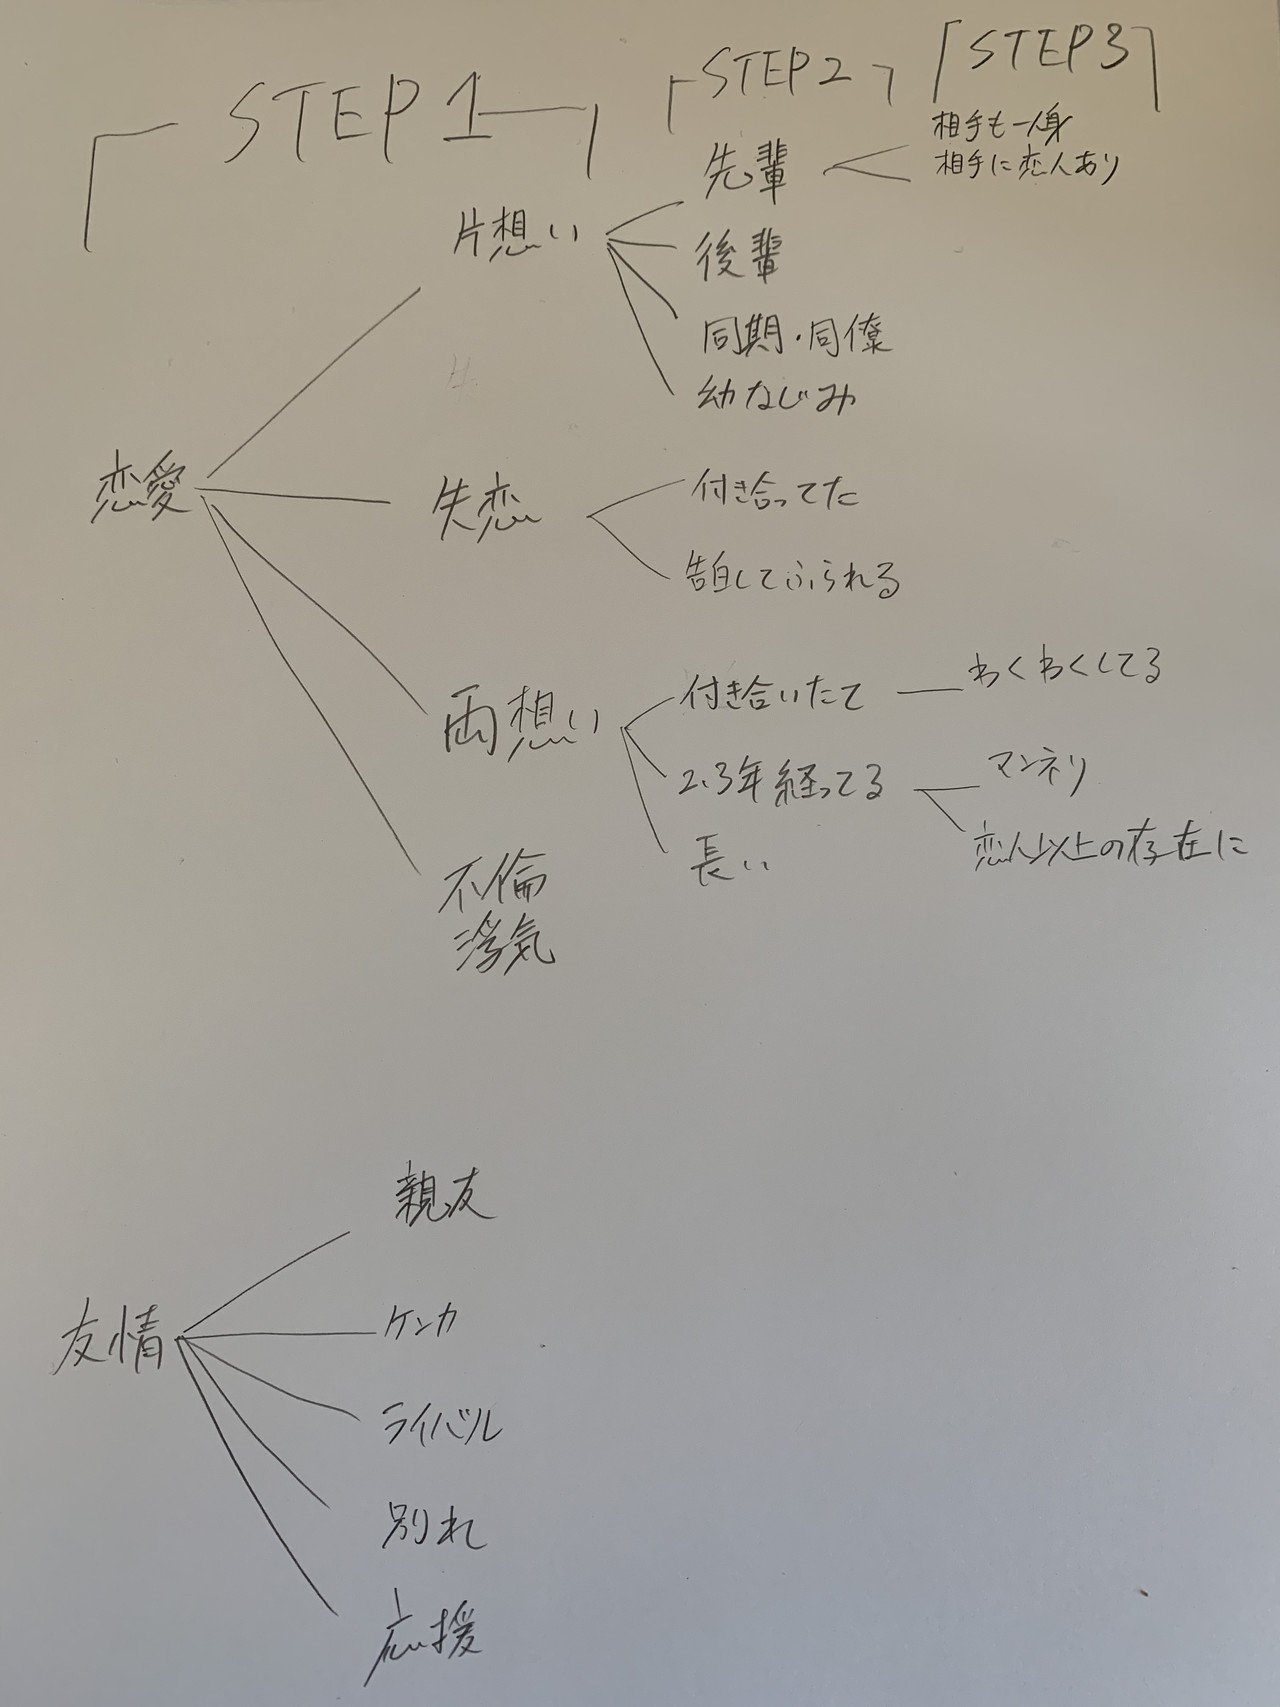 STEP1
STEP2
STEP3
相手も一人身
相手に恋人あり
先輩
片想い
後輩
同期・同僚
幼なじみ
恋愛
失恋
付き合ってた
告白してふられる
両想い
付き合いたて
わくわくしてる
2、3年経ってる
マンネリ
恋人以上の存在に
長い
不倫
浮気
親友
友情
ケンカ
ライバル
別れ
応援